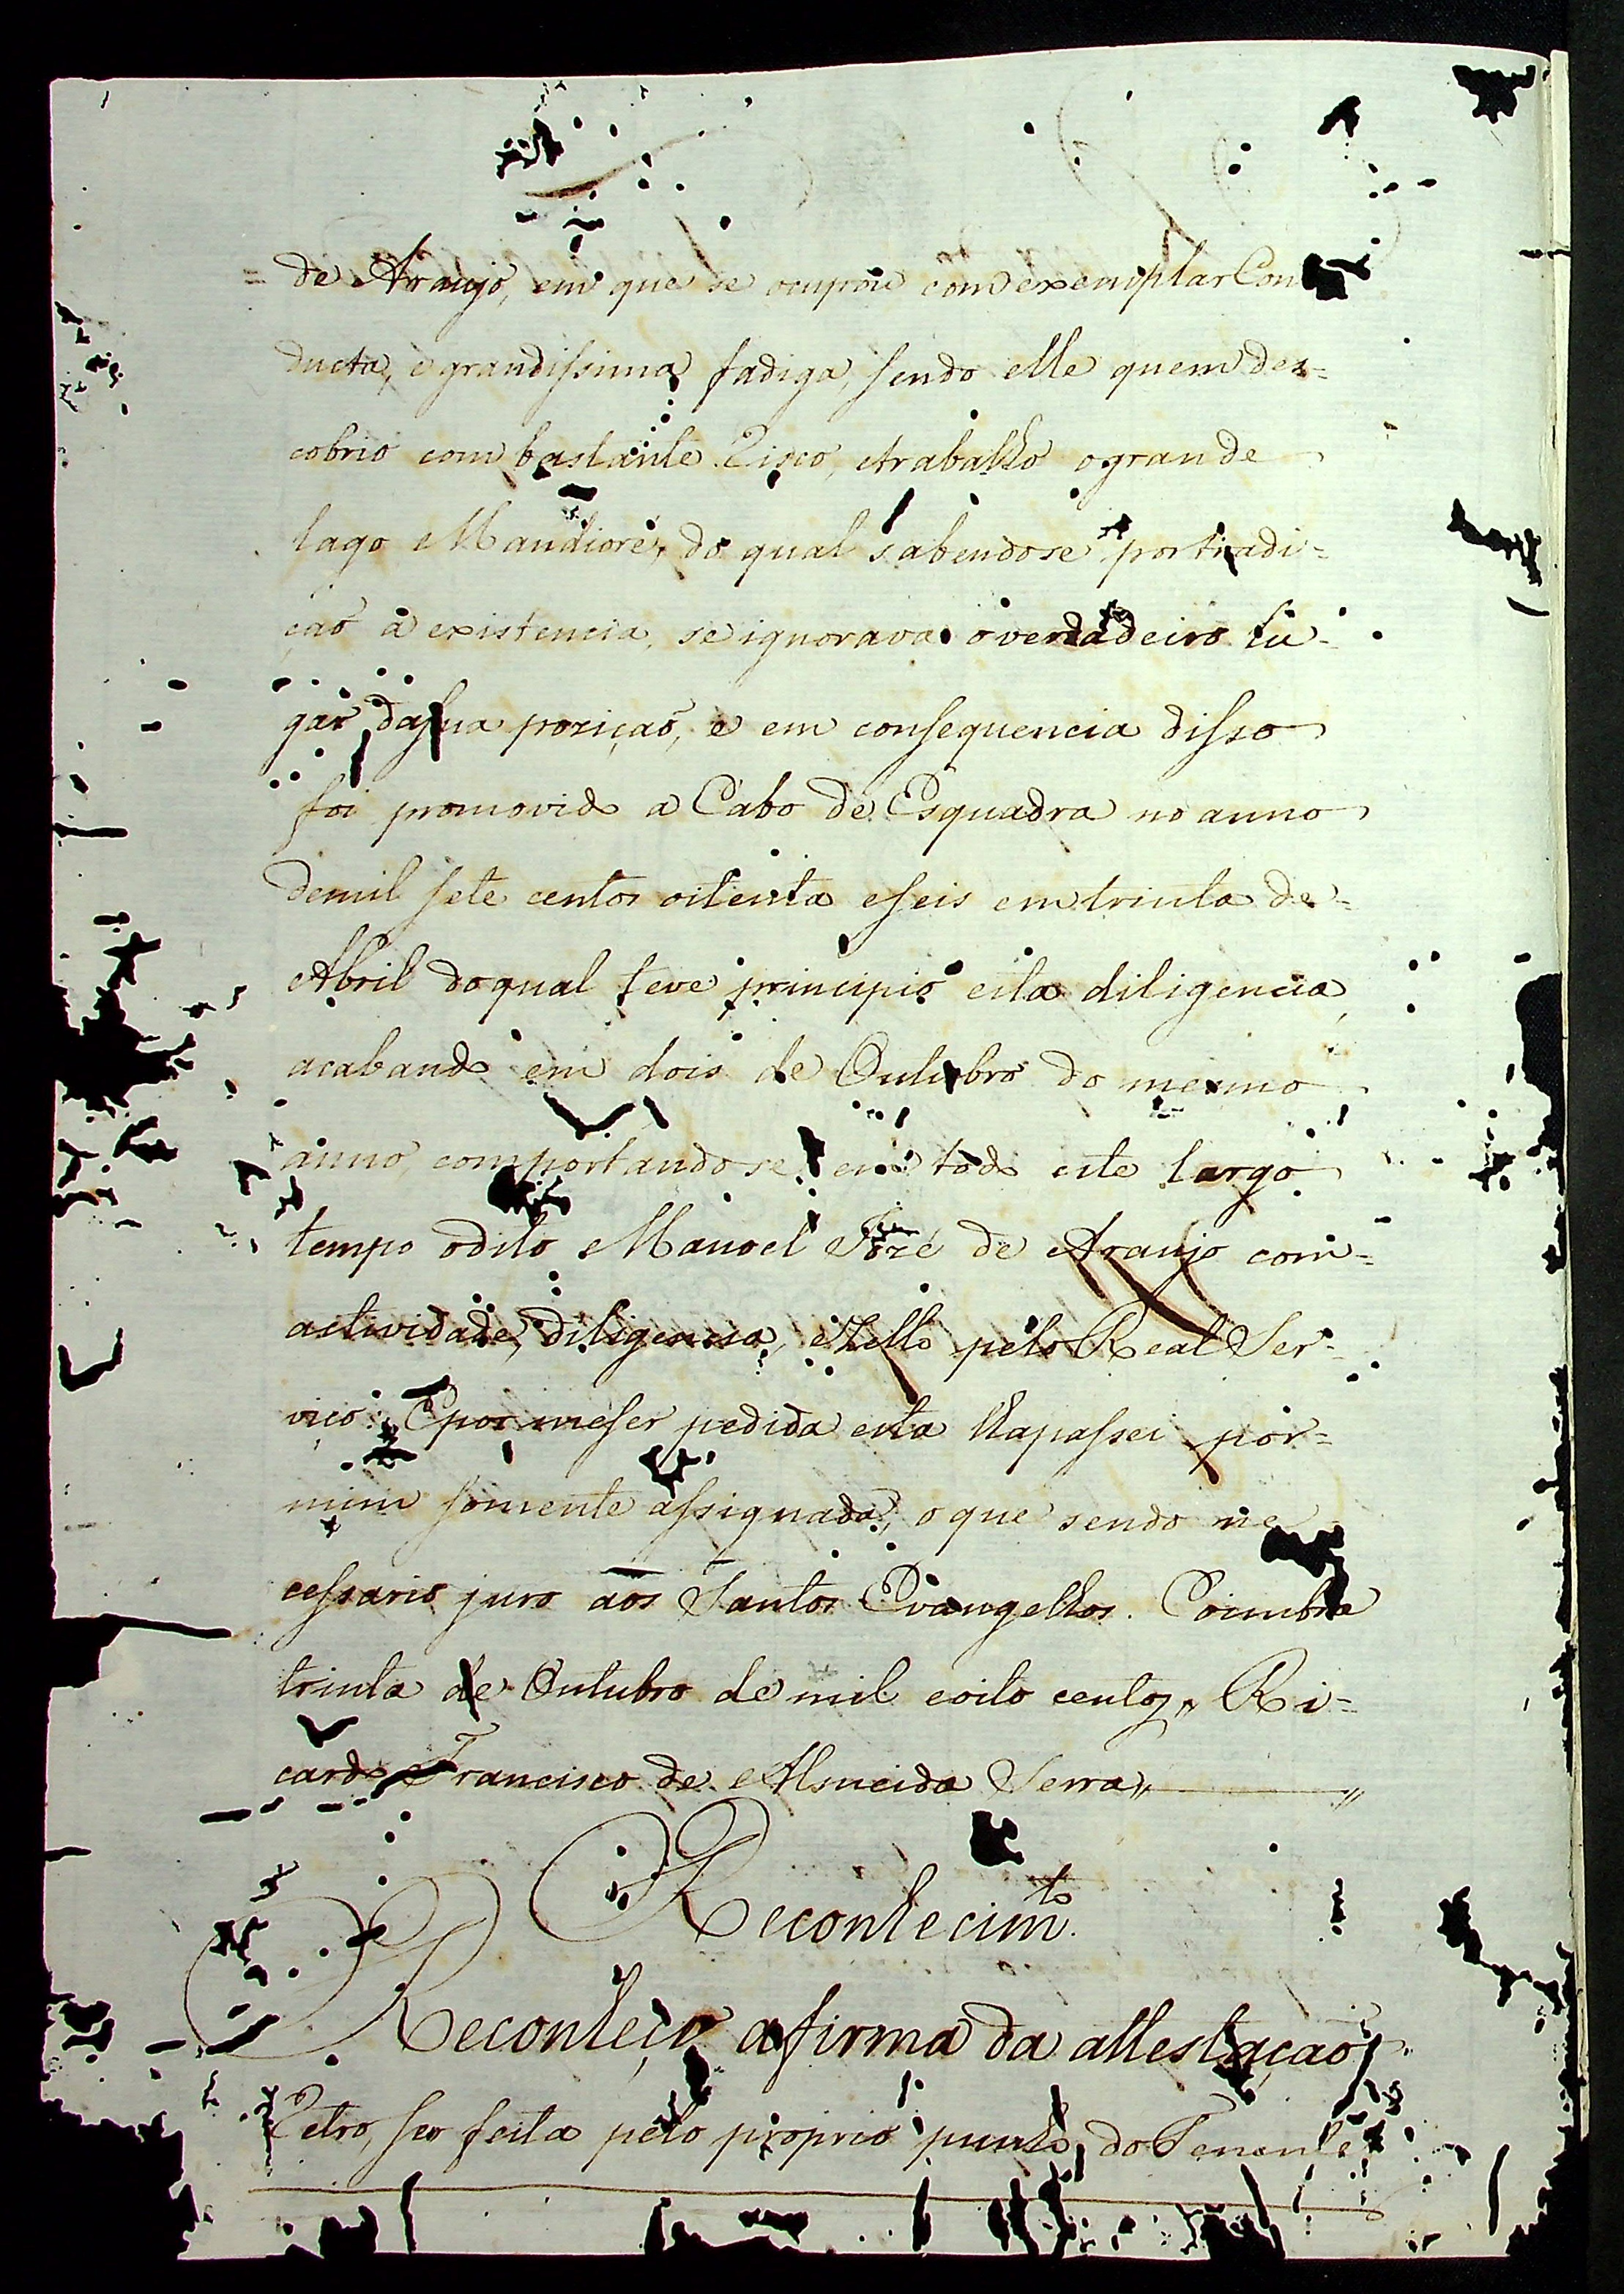 = de Araujo, em que se ocupou com exemplar Con
ducta, e grandissima fadiga, sendo elle quem des=
cobrio com bastante Risco, etrabalho ogrande
lago Mandioré, do qual sabendose por tradi=
çaõ a existencia, se ignorava overdadeiro Lu=
gar dasua poziçaõ, e em consequencia disso
foi promovido a Cabo de Esquadra no anno
demil sete centos oitenta eseis em trinta de=
Abril doqual teve principio esta diligencia,
acabando em dois de Outubro do mesmo
anno, comportandose em todo este largo
tempo odito Manoel Jozé de Araujo com=
actividade, diligencia, eZello pelo Real Ser=
viço. Epor meser pedida esta lhapassei por=
mim somente assignada, o que sendo ne
cessario juro aos Santos Evangelhos. Coimbra
trinta de Outubro de mil eoito centos,, Ri=
cardo Francisco de Almeida Serra,, ———— ,,
Reconhecim.to
Reconheço afirma da attestaçaõ
Retro, ser feita pelo proprio punho do Tenente